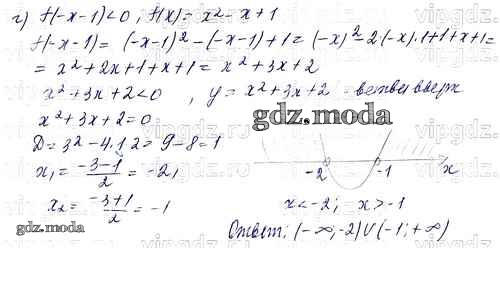 г) f(-x-1)<0, f(x)=x²-x+1
f(-x-1)= (-x-1)²-(-x-1)+1=(-x)²-2(-x)·1+1+x+1=
= x²+2x+1+x+1= x²+3x+2
x²+3x+2<0 , y= x²+3x+2 - ветви вверх
x²+3x+2=0
D=3²-4·1·2=9-8=1
x₁= (-3-1)/2 = -2,
x₂= (-3+1)/2 = -1
-2 -1 x
x<-2; x>-1
Ответ: (-∞;-2)U(-1;+∞)
gdz.moda
gdz.moda
vipgdz.ru